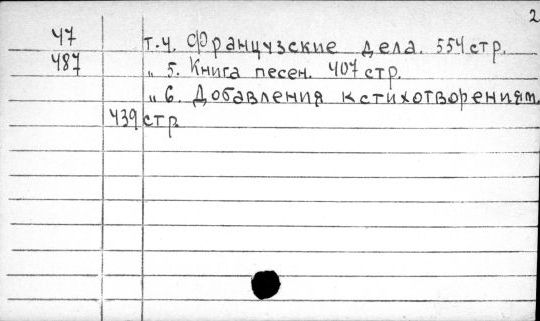 2
47 т.4. Французские дела. 554 стр.
487 " 5. Книга песен. 407 стр.
" 6. Добавления к стихотворениям.
439 стр